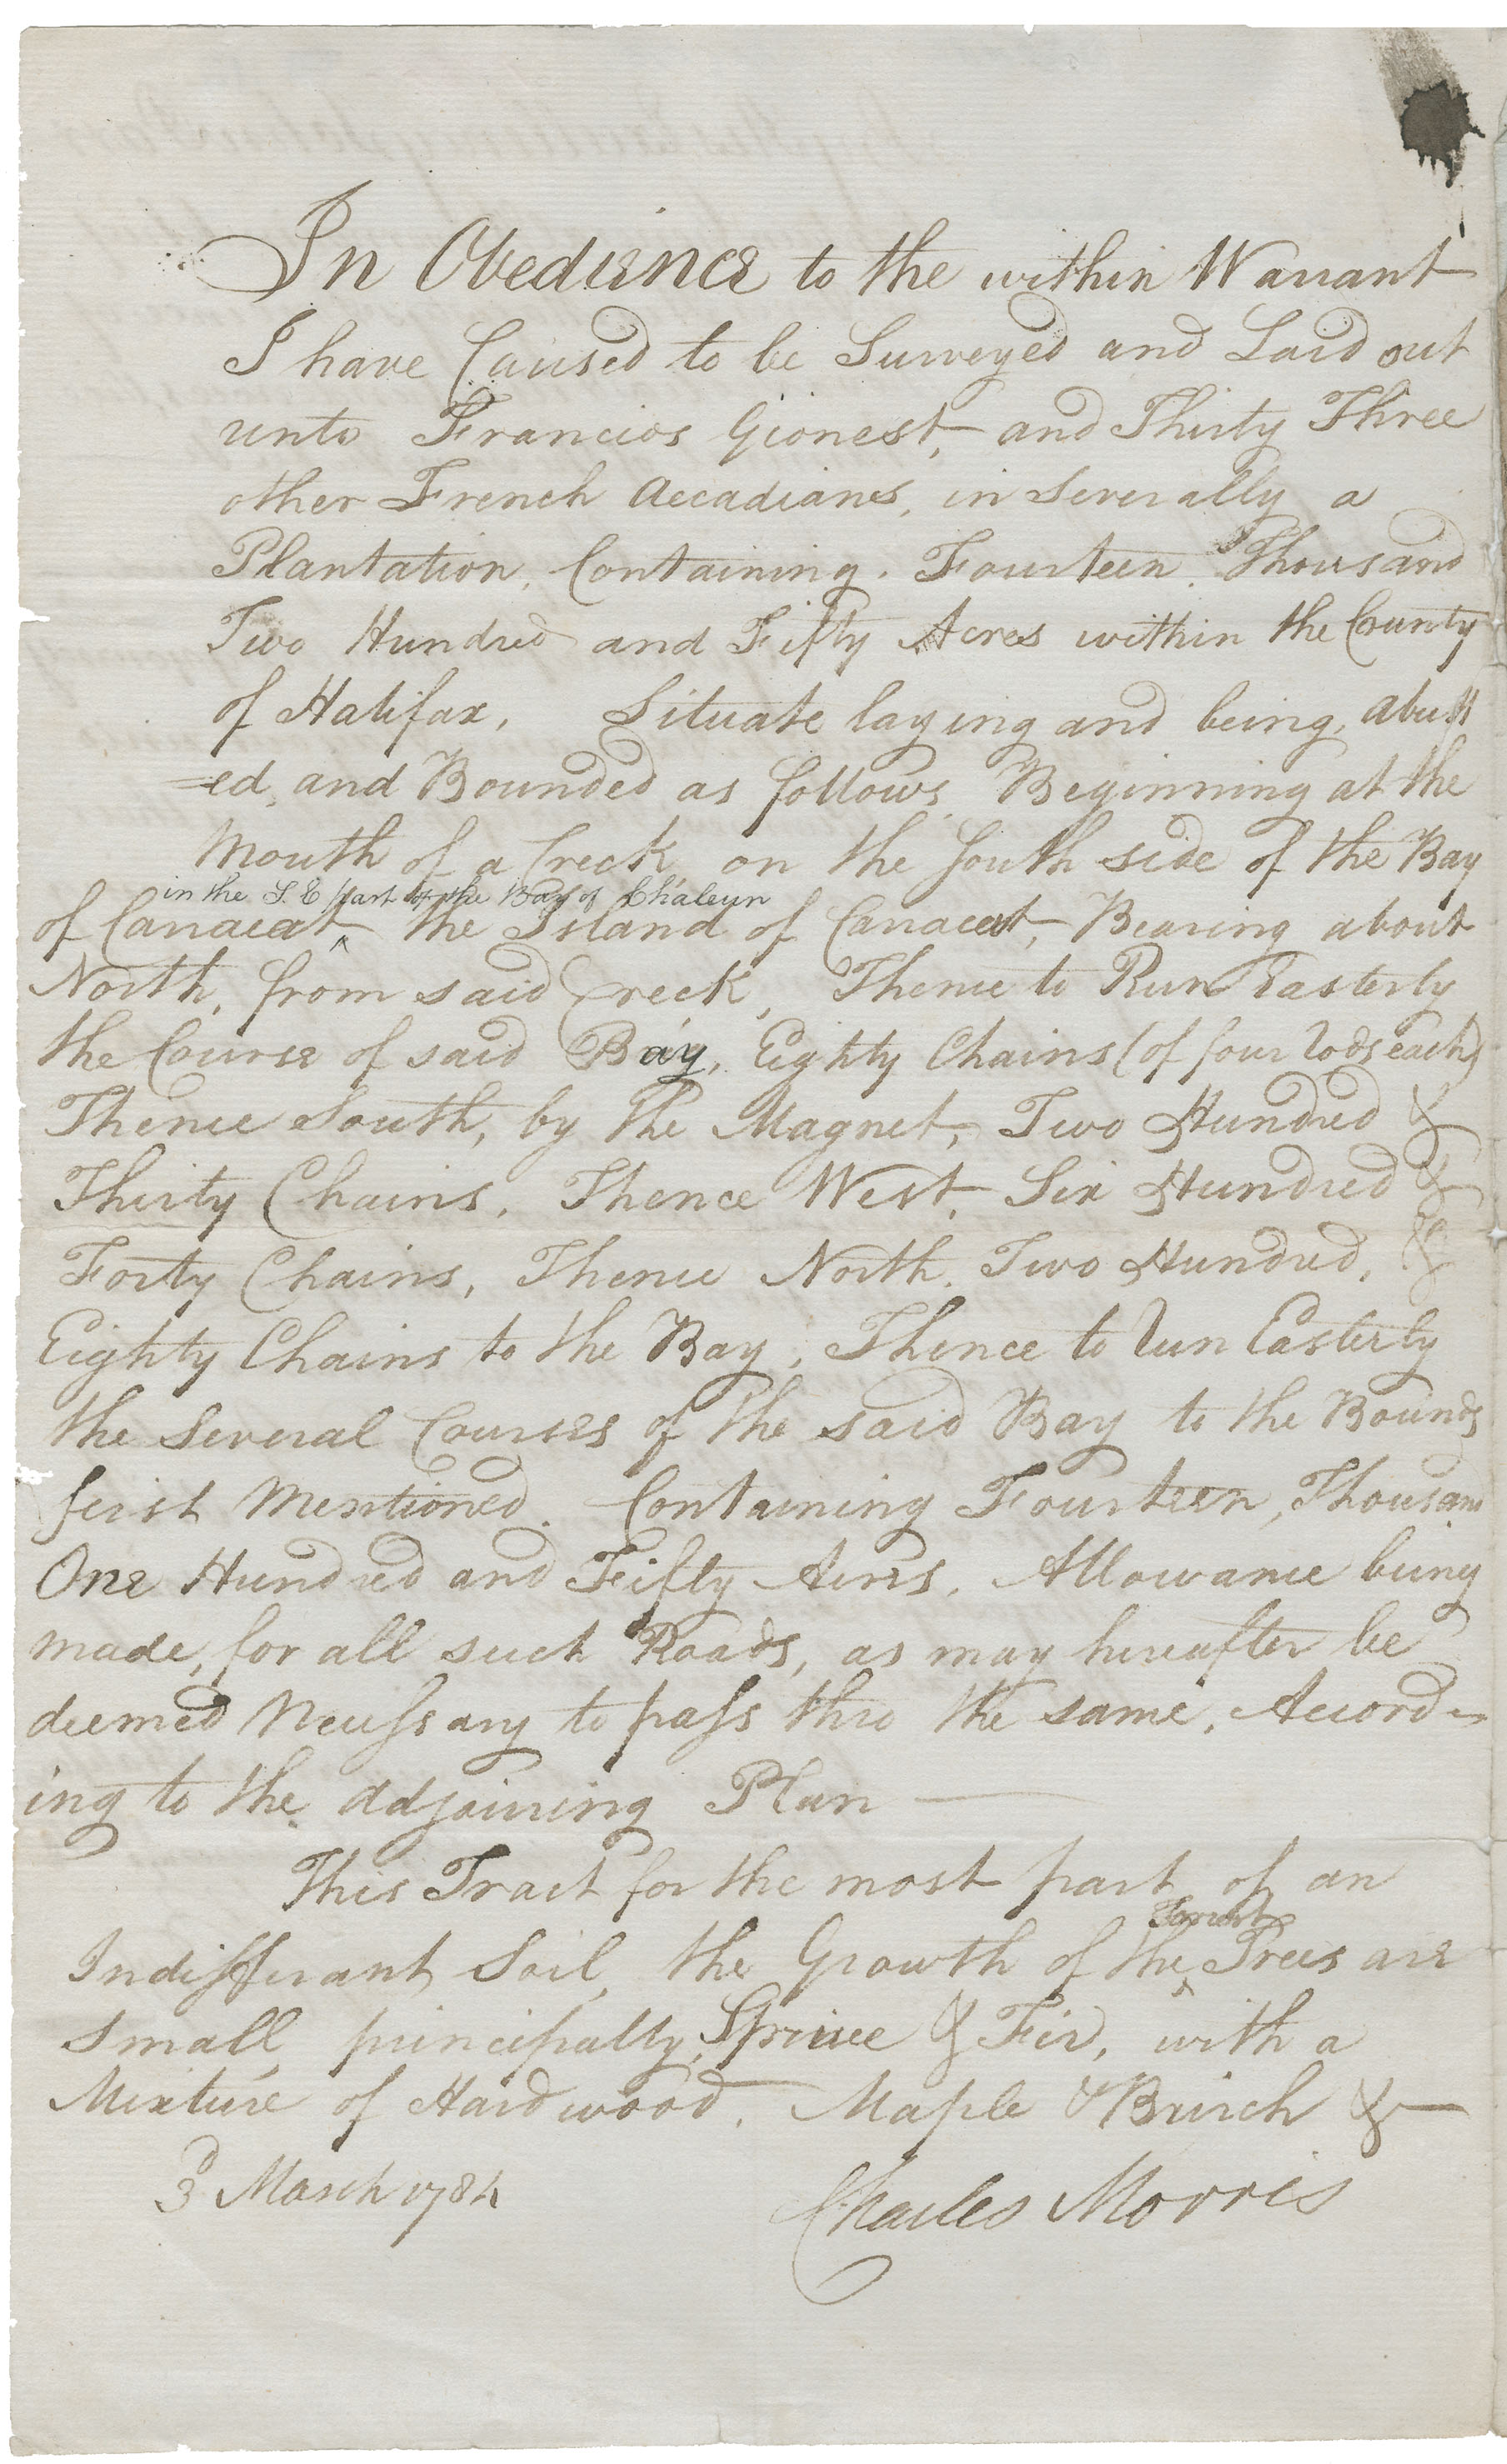 In Obedience to the within Warrant
I have Caused to be Surveyed and Laid out
unto Francios Gionest, and Thirty Three
other French Accadianes, in Severally a
Plantation, Containing. Fourteen. Thousand
Two Hundred and Fifty Acres within the County
of Halifax, Situate laying and being, abutt
=ed, and Bounded as follows, Beginning at the
Mouth of a Creek, on the South side of the Bay
in the S. E part of the Bay of Chaleur
of Canacat ^ the Island of Canacat, Bearing about
North, from said Creek, Thence to Run Easterly
the Course of said Bay, Eighty Chains (of four rods each)
Thence South, by the Magnet, Two Hundred &
Thirty Chains, Thence West, Six Hundred &
Forty Chains, Thence North, Two Hundred, &
Eighty Chains to the Bay, Thence to run Easterly
the Several Courses of the said Bay to the Bounds
first Mentioned. Containing Fourteen, Thousand
One Hundred and Fifty Acres, Allowance being
made, for all such Roads, as may hereafter be
deemed Necessary to pass thro the same, Accord=
ing to the adjoining Plan
This Tract for the most part of an
Indifferant Soil, the Growth of the ^ Trees are
small, principally, Spruce & Fir, with a
Mixture of Hardwood, Maple & Brirch &
3d March 1784
Charles Morris